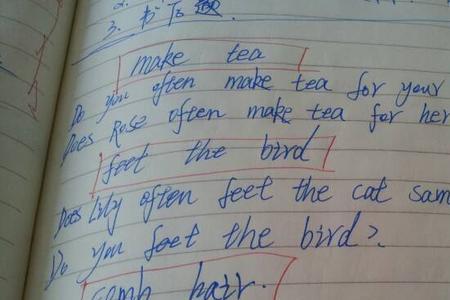 2.
3. 书后
make tea
Do you often make tea for your
Does Rose often make tea for her
feet the bird
Does Lily often feet the cat sam
Do you feet the bird?
comb hair.